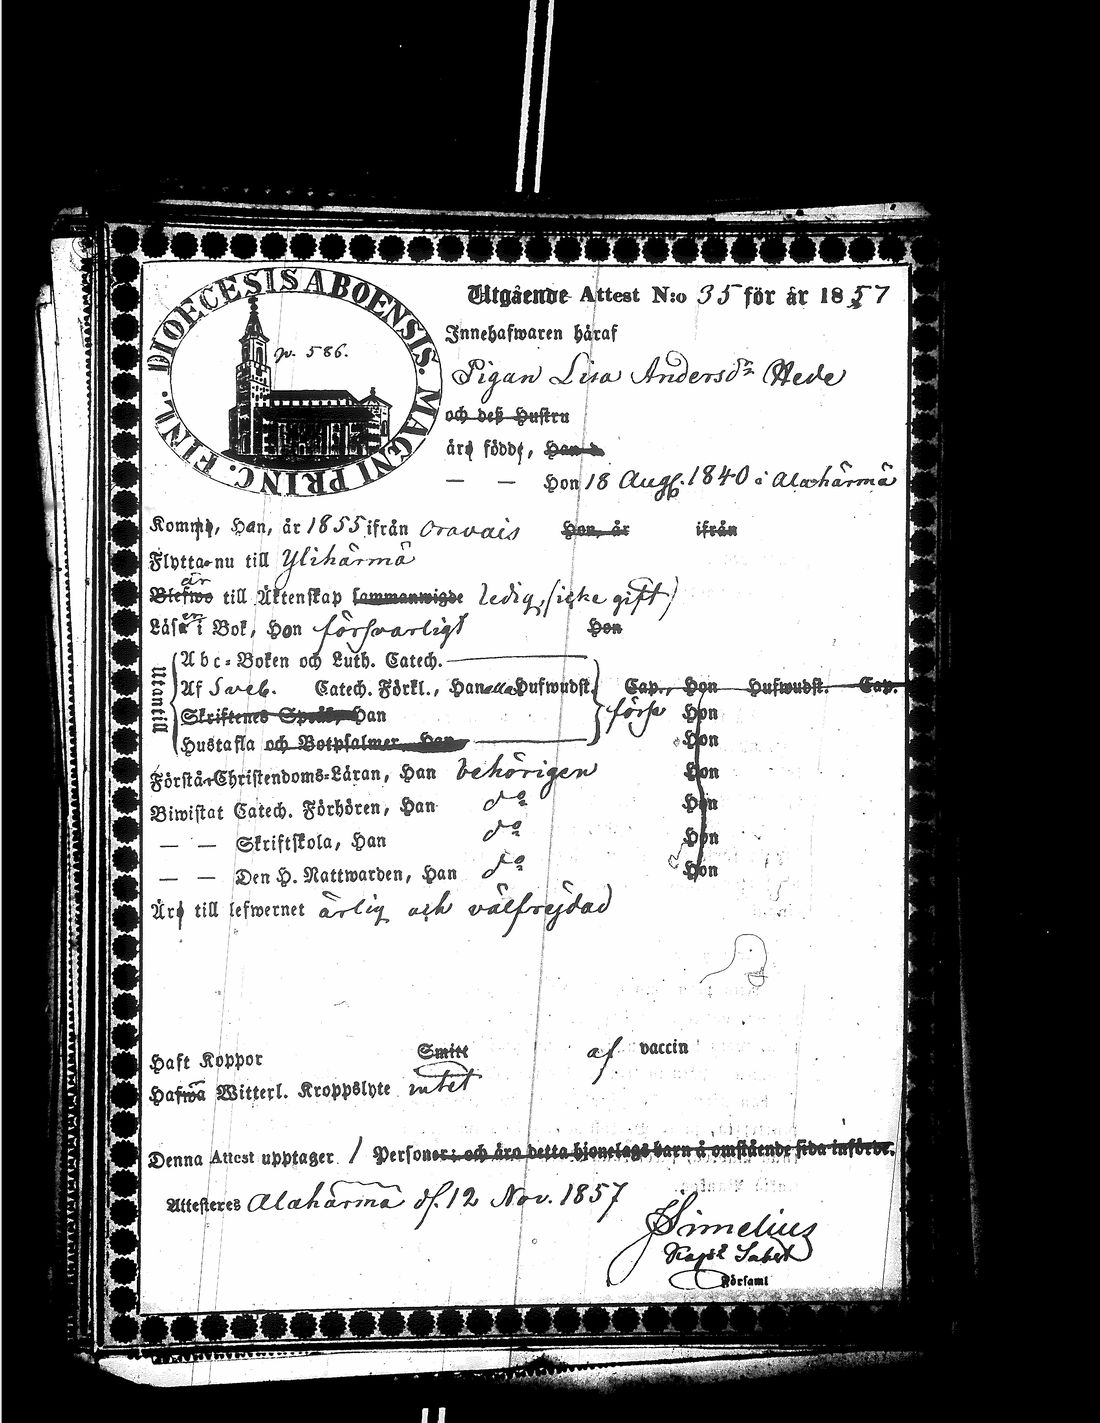 DIOECESIS ABOENSIS. MAGNI PRINC. FINL.
p. 586.
Utgående Attest N:o 35 för år 1857
Innehafwaren häraf
Pigan Lisa Andersdr Hede
och deß Hustru
äro födde, Han d
— — Hon 18 Aug. 1840 i Alahärmä
Komm, Han, år 1855 ifrån Oravais Hon, år ifrån
Flytta nu till Ylihärmä
är
Blefwo till Äktenskap sammanwigde ledig, (icke gift)
Läsa i Bok, Hon försvarligt Hon
Utantill
Abc-Boken och Luth. Catech.
Af Sveb. Catech. Förkl., Han Hufwudst. Cap., Hon Hufwudst. Cap.
Skriftenes Språk, Han förs Hon
Hustafla och Botpsalmer, Han Hon
Förstå Christendoms-Läran, Han behörigen Hon
Biwistat Catech. Förhören, Han do Hon
— — Skriftskola, Han do Hon
— — Den H. Nattwarden, Han do Hon
Äro till lefwernet ärlig och välfrejdad
Haft Koppor Smitt af vaccin
Hafwa Witterl. Kroppslyte intet
Denna Attest upptager 1 Personer: och äro detta hjonelags barn å omstående sida införde.
Attesteres Alahärmä d. 12 Nov. 1857
Simelius
Församl